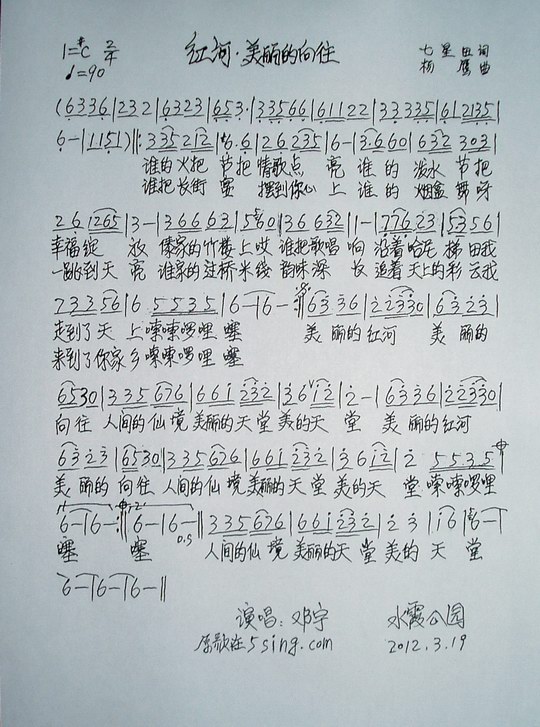 1=#C 2/4 红河·美丽的向往 七星田词
♩=90 杨鹰曲
(6336|232|6323|653·|33566|61122|33335|612135|
6-|1151)‖:335212|6·6|26235|6-|3·660|632 303|
谁的火把 节把情歌点 亮 谁的 泼水 节把
谁把长街 宴 摆到你心 上 谁的 烟盒 舞 呀
26 1265|3-|36663|5650|36 632|1-|77623|5356|
幸福绽 放 傣家的竹楼上哎 谁把歌唱 响 沿着哈尼 梯田我
一跳到天 亮 谁家的过桥米线 韵味深 长 追着天上的彩 云我
723356|6 5535|6-|6-:‖6336|22330|6323|
走到了天 上嗦嗦啰哩 噻 美 丽的红河 美 丽的
来到了你家乡嗦嗦啰哩 噻
6530|335 676|661 232|36 12|2-|6336|22330|
向往 人间的仙 境 美丽的天 堂 美的天 堂 美 丽的红河
6323|6530|335 676|661 232|36 12|2 5535|
美 丽的 向往 人间的仙 境 美丽的天 堂 美的天 堂 嗦嗦啰哩
6-|6-:‖6-|6-‖335 676|661 232|2 3|16|6-|
噻 噻 D.S 人间的仙 境 美丽的天 堂 美的 天 堂
6-|6-|6-‖
演唱:邓宇 水霞公园
原歌在5sing.com 2012.3.19